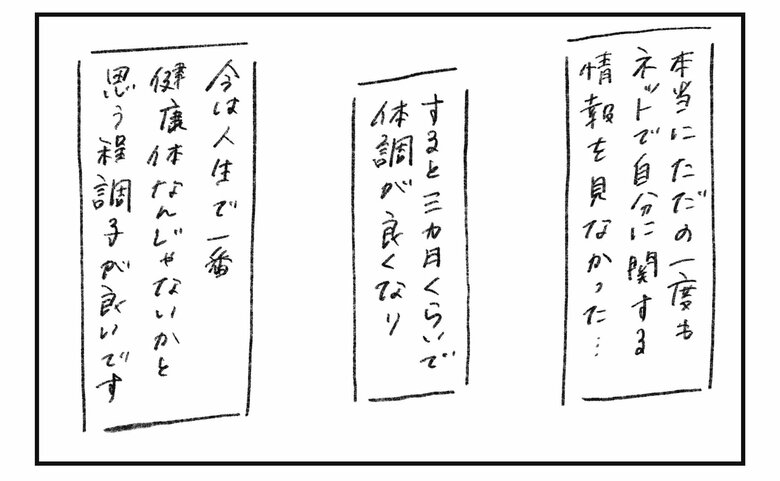 本当にただの一度も
ネットで自分に関する
情報を見なかった…
すると三カ月くらいで
体調が良くなり
今は人生で一番
健康体なんじゃないかと
思う程調子が良いです